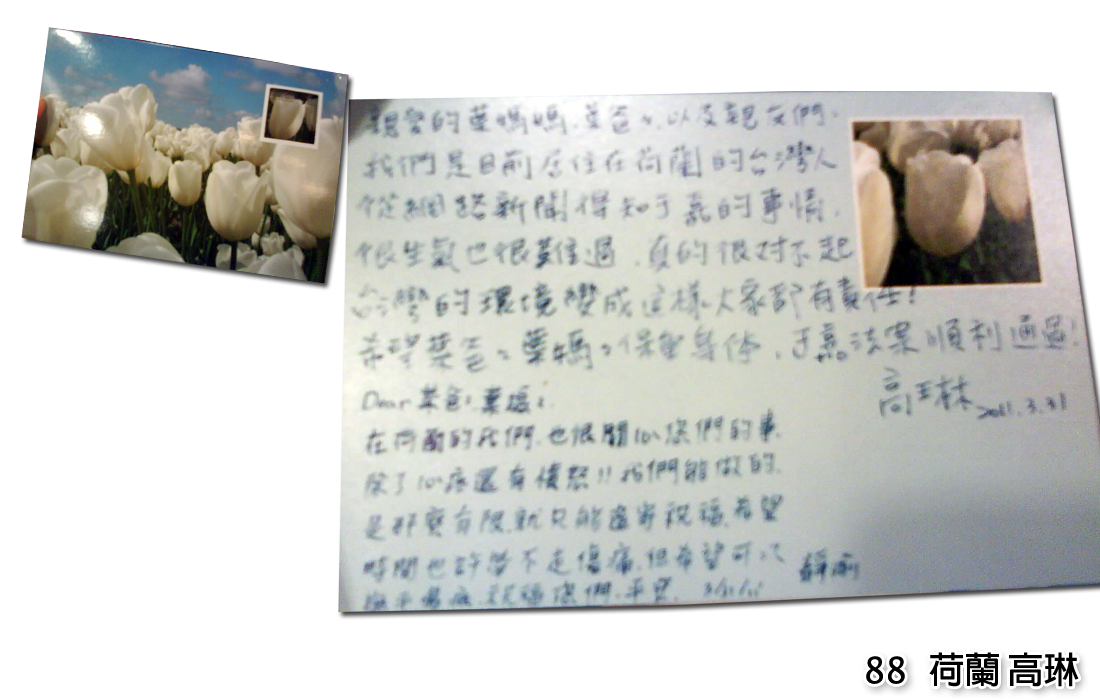 親愛的葉媽媽、葉爸々、以及親友們、
我們是目前居住在荷蘭的台灣人
從網路新聞得知于嘉的事情、
很生氣也很難過、真的很对不起
台灣的環境變成這樣大家都有責任！
希望葉爸々葉媽々保重身体、于嘉法案順利通過！
高琳 2011.3.31
Dear 葉爸、葉媽、
在荷蘭的我們、也很關心您們的事、
除了心疼還有憤怒!! 我們能做的、
是那麼有限、就只能遙寄祝福、希望
時間也許帶不走傷痛、但希望可以
撫平傷痕、祝福您們、平安、 3/31/11
靜
88 荷蘭 高琳